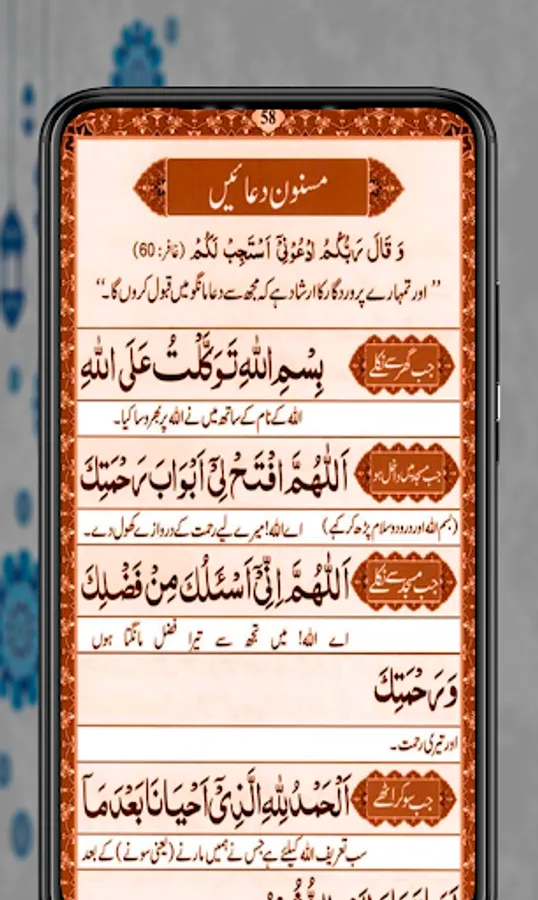 58
مسنون دعائیں
وَ قَالَ رَبُّكُمُ ادْعُوْنِيْٓ اَسْتَجِبْ لَكُمْ (غافر: 60)
”اور تمہارے پروردگار کا ارشاد ہے کہ مجھ سے دعا مانگو میں قبول کروں گا۔“
جب گھر سے نکلے
بِسْمِ اللّٰهِ تَوَكَّلْتُ عَلَى اللّٰهِ
اللہ کے نام کے ساتھ میں نے اللہ پر بھروسا کیا۔
جب مسجد میں داخل ہو
اَللّٰهُمَّ افْتَحْ لِيْٓ اَبْوَابَ رَحْمَتِكَ
(بسم اللہ اور درود وسلام پڑھ کر کہے) اے اللہ! میرے لیے رحمت کے دروازے کھول دے۔
جب مسجد سے نکلے
اَللّٰهُمَّ اِنِّيْٓ اَسْئَلُكَ مِنْ فَضْلِكَ
اے اللہ! میں تجھ سے تیرا فضل مانگتا ہوں
وَرَحْمَتِكَ
اور تیری رحمت۔
جب سو کر اٹھے
اَلْحَمْدُ لِلّٰهِ الَّذِيْٓ اَحْيَانَا بَعْدَ مَآ
سب تعریف اللہ کیلئے ہے جس نے ہمیں مارنے (یعنی سونے) کے بعد